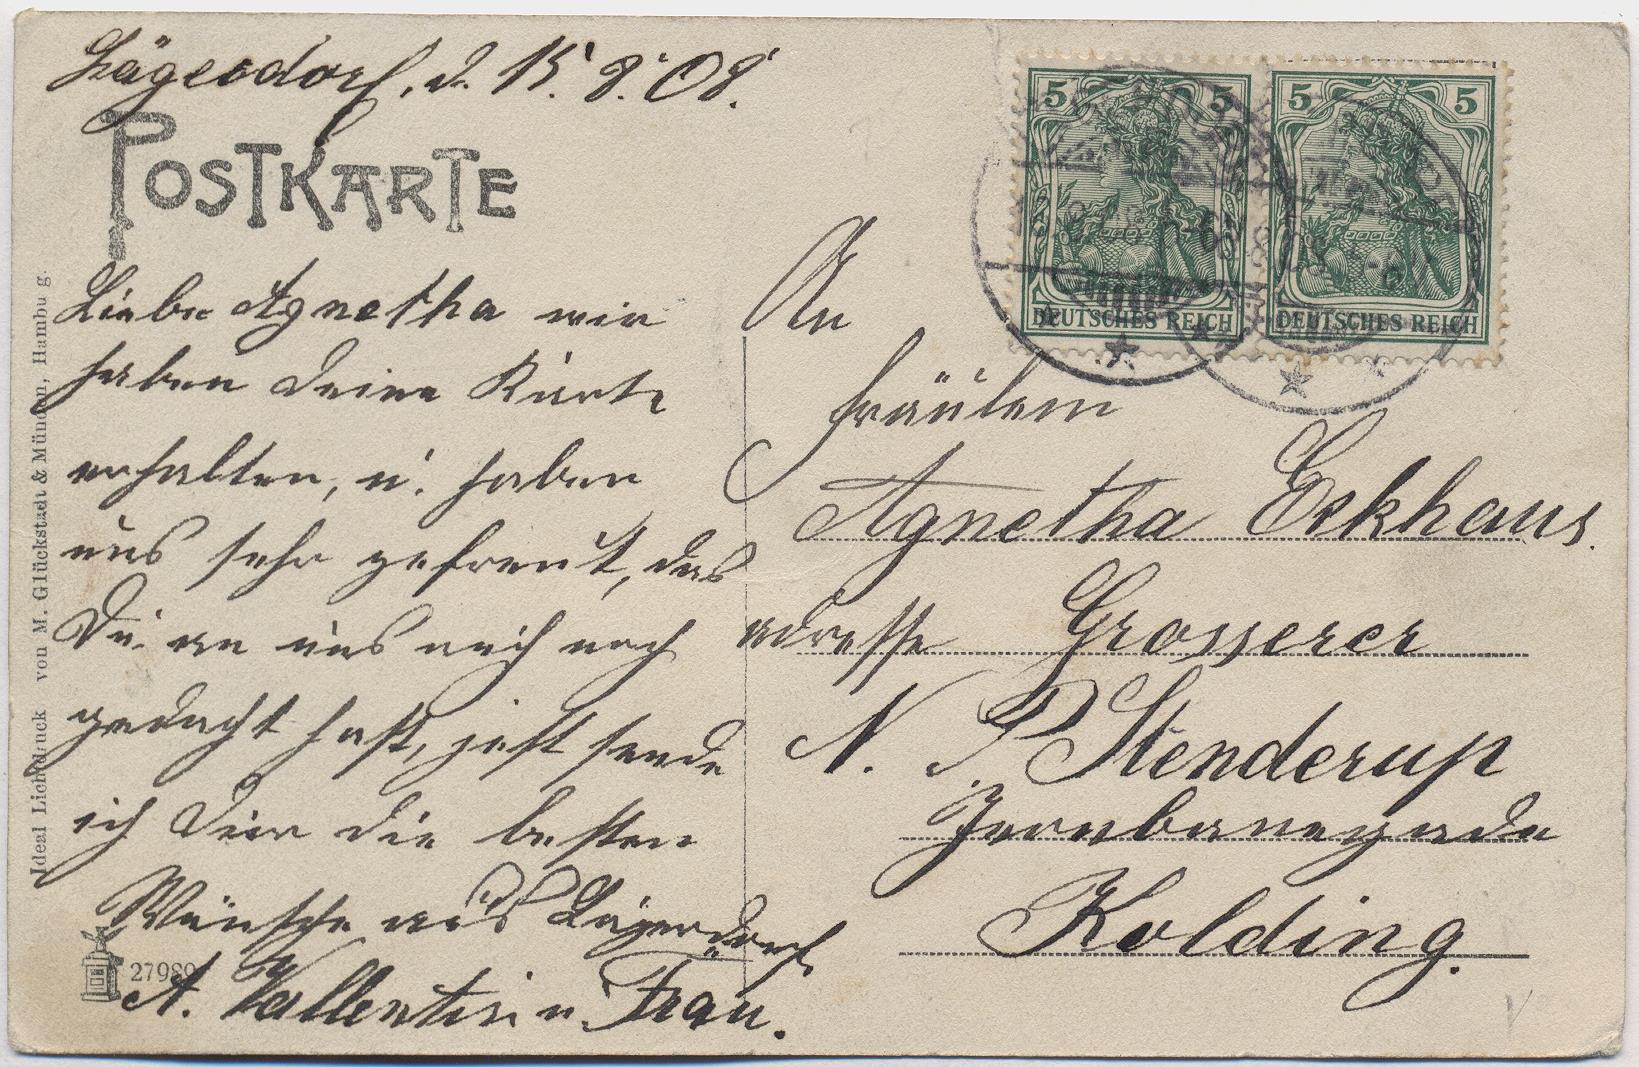 Lägerdorf, d. 15. 8. 08.
POSTKARTE
Liebe Agnetha wir
haben deine Karte
erhalten, u. haben
uns sehr gefreut, das
Du an uns auch noch
gedacht hast, jetzt sende
ich Dier die besten
Wünsche aus Lägerdorf
A. Vallentin u. Frau.
27989
Ideal Lichtdruck von M. Glückstadt & Münden, Hamburg.
5 5
DEUTSCHES REICH
5 5
DEUTSCHES REICH
An
Fräulein
Agnetha Eskhaus.
adresse Grosserer
N. P. Stenderup
Jernbanegade
Kolding.